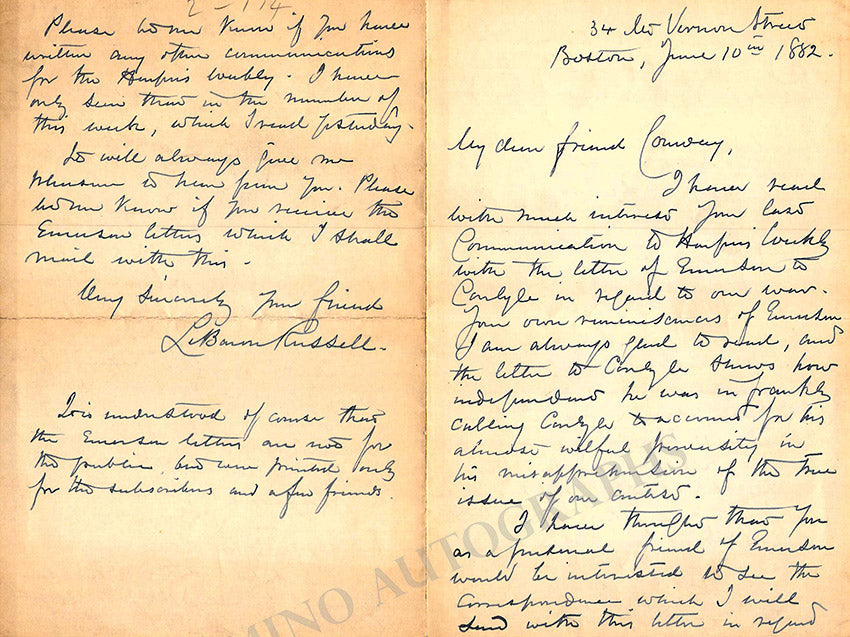 34 Mt Vernon Street
Boston, June 10th 1882.
My dear friend Conway,
I have read
with much interest your last
Communication to Harpers Weekly
with the letter of Emerson to
Carlyle in regard to our war.
Your own reminiscences of Emerson
I am always glad to read, and
the letter to Carlyle shows how
independent he was in frankly
calling Carlyle to account for his
almost wilful perversity in
his misapprehension of the true
issue of our contest.
I have thought that you
as a personal friend of Emerson
would be interested to see the
correspondence which I will
send with this letter in regard
Please let me know if you have
written any other communications
for the Harpers Weekly. I have
only seen that in the number of
this week, which I read yesterday.
It will always give me
pleasure to hear from you. Please
let me know if you receive the
Emerson letters which I shall
mail with this.
Very Sincerely your friend
LeBaron Russell.
It is understood of course that
the Emerson letters are not for
the public, but were printed only
for the subscribers and a few friends.
MINO AUTOGRAPHS